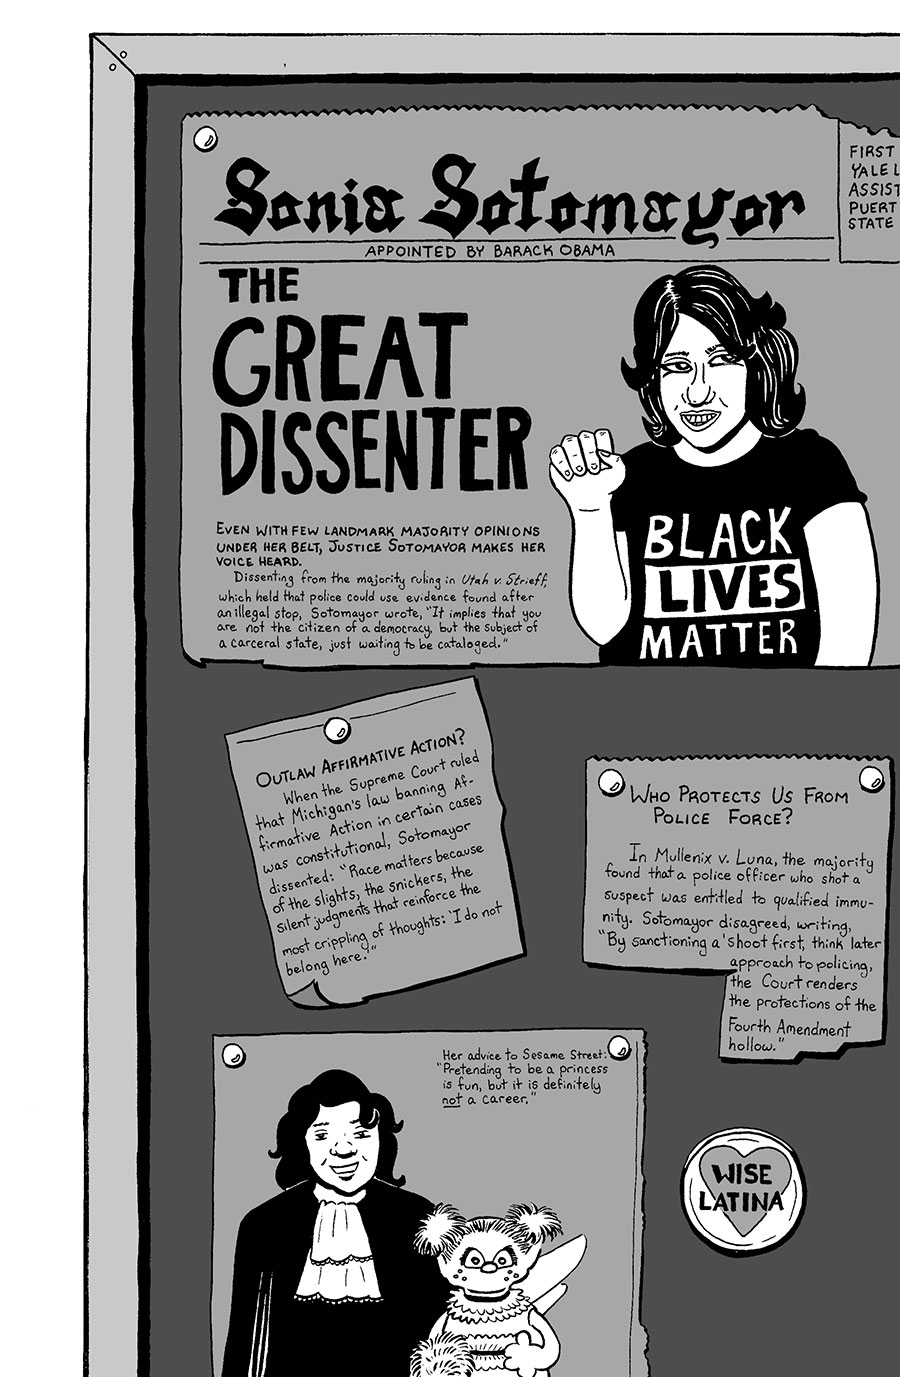 Sonia Sotomayor
APPOINTED BY BARACK OBAMA
THE
GREAT
DISSENTER
EVEN WITH FEW LANDMARK MAJORITY OPINIONS
UNDER HER BELT, JUSTICE SOTOMAYOR MAKES HER
VOICE HEARD.
Dissenting from the majority ruling in Utah v. Strieff,
which held that police could use evidence found after
an illegal stop, Sotomayor wrote, "It implies that you
are not the citizen of a democracy, but the subject of
a carceral state, just waiting to be cataloged."
BLACK
LIVES
MATTER
FIRST
YALE L
ASSIST
PUERT
STATE
OUTLAW AFFIRMATIVE ACTION?
When the Supreme Court ruled
that Michigan's law banning Af-
firmative Action in certain cases
was constitutional, Sotomayor
dissented: "Race matters because
of the slights, the snickers, the
silent judgments that reinforce the
most crippling of thoughts: 'I do not
belong here.'"
WHO PROTECTS US FROM
POLICE FORCE?
In Mullenix v. Luna, the majority
found that a police officer who shot a
suspect was entitled to qualified immu-
nity. Sotomayor disagreed, writing,
"By sanctioning a 'shoot first, think later'
approach to policing,
the Court renders
the protections of the
Fourth Amendment
hollow."
Her advice to Sesame Street:
"Pretending to be a princess
is fun, but it is definitely
not a career."
WISE
LATINA